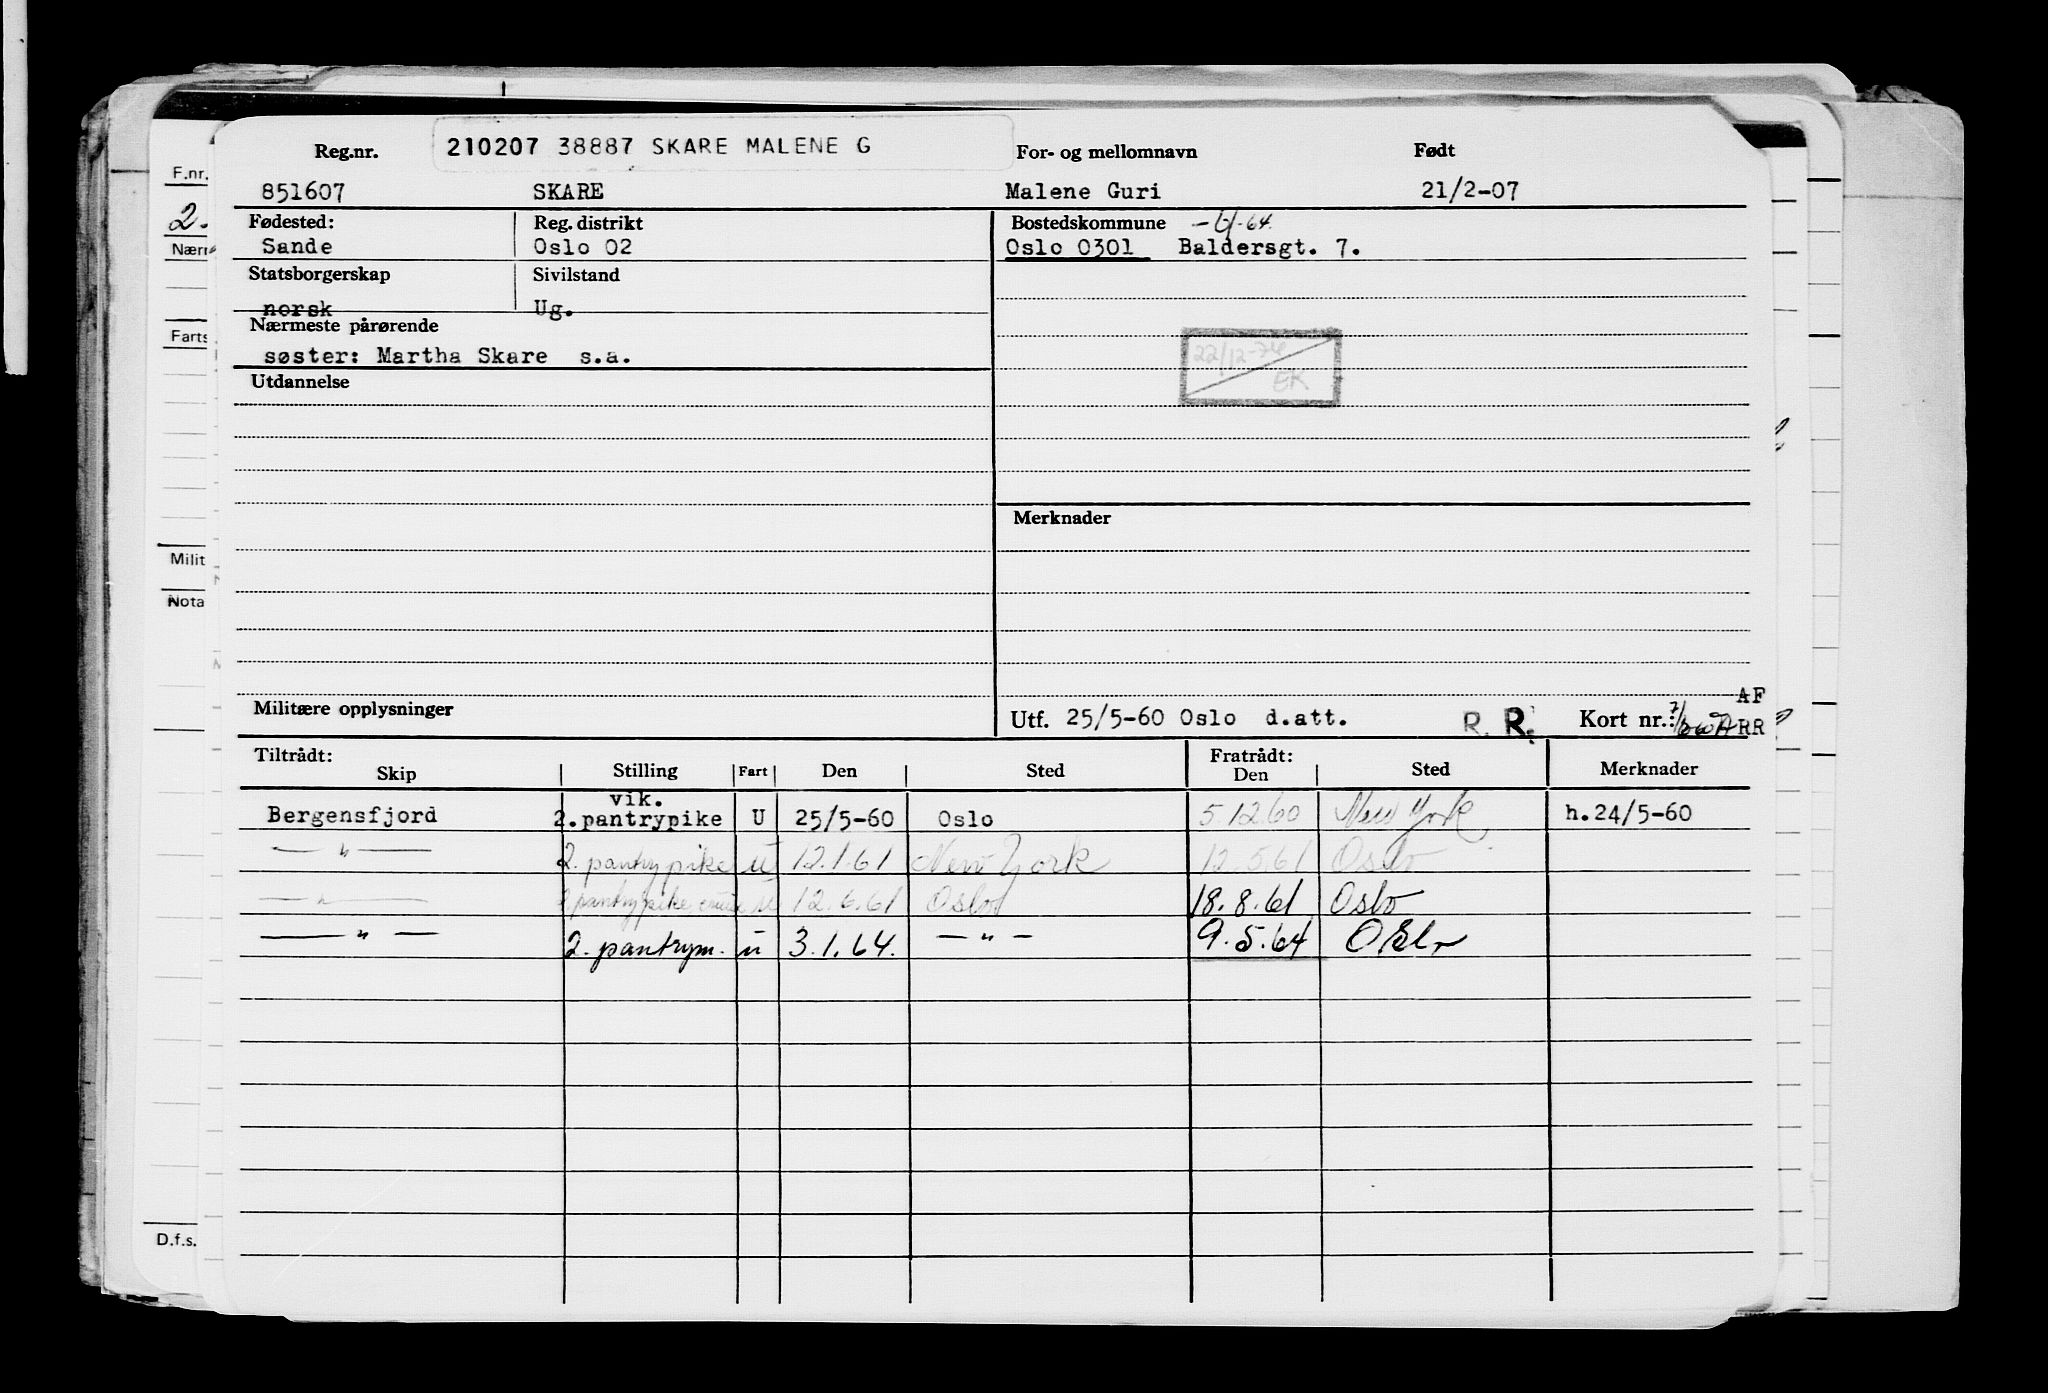 210207 38887 SKARE MALENE G
Reg.nr. For- og mellomnavn Født
851607 SKARE Malene Guri 21/2-07
Fødested: Reg. distrikt Bostedskommune
Sande Oslo 02 Oslo 0301 Baldersgt. 7.
Statsborgerskap Sivilstand
norsk Ug.
Nærmeste pårørende
søster: Martha Skare s.a.
22/12-76
EK
Utdannelse
Merknader
AF
Militære opplysninger Utf. 25/5-60 Oslo d.att. R. R. Kort nr.: RR
Tiltrådt: Fratrådt:
Skip Stilling Fart Den Sted Den Sted Merknader
vik.
Bergensfjord 2.pantrypike U 25/5-60 Oslo 5.12.60 New York h.24/5-60
— " — 2. pantrypike u 12.1.61 New York 12.5.61 Oslo
— " — pantrypike u 12.6.61 Oslo 18.8.61 Oslo
— " — 2. pantrym. u 3.1.64. — " — 9.5.64 Oslo
F.nr.
2.
Nærm
Farts
Milit
Nota
D.f.s.